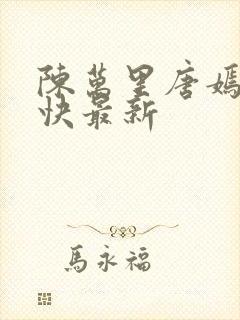 陳萬里唐嫣
快最新
馬永福